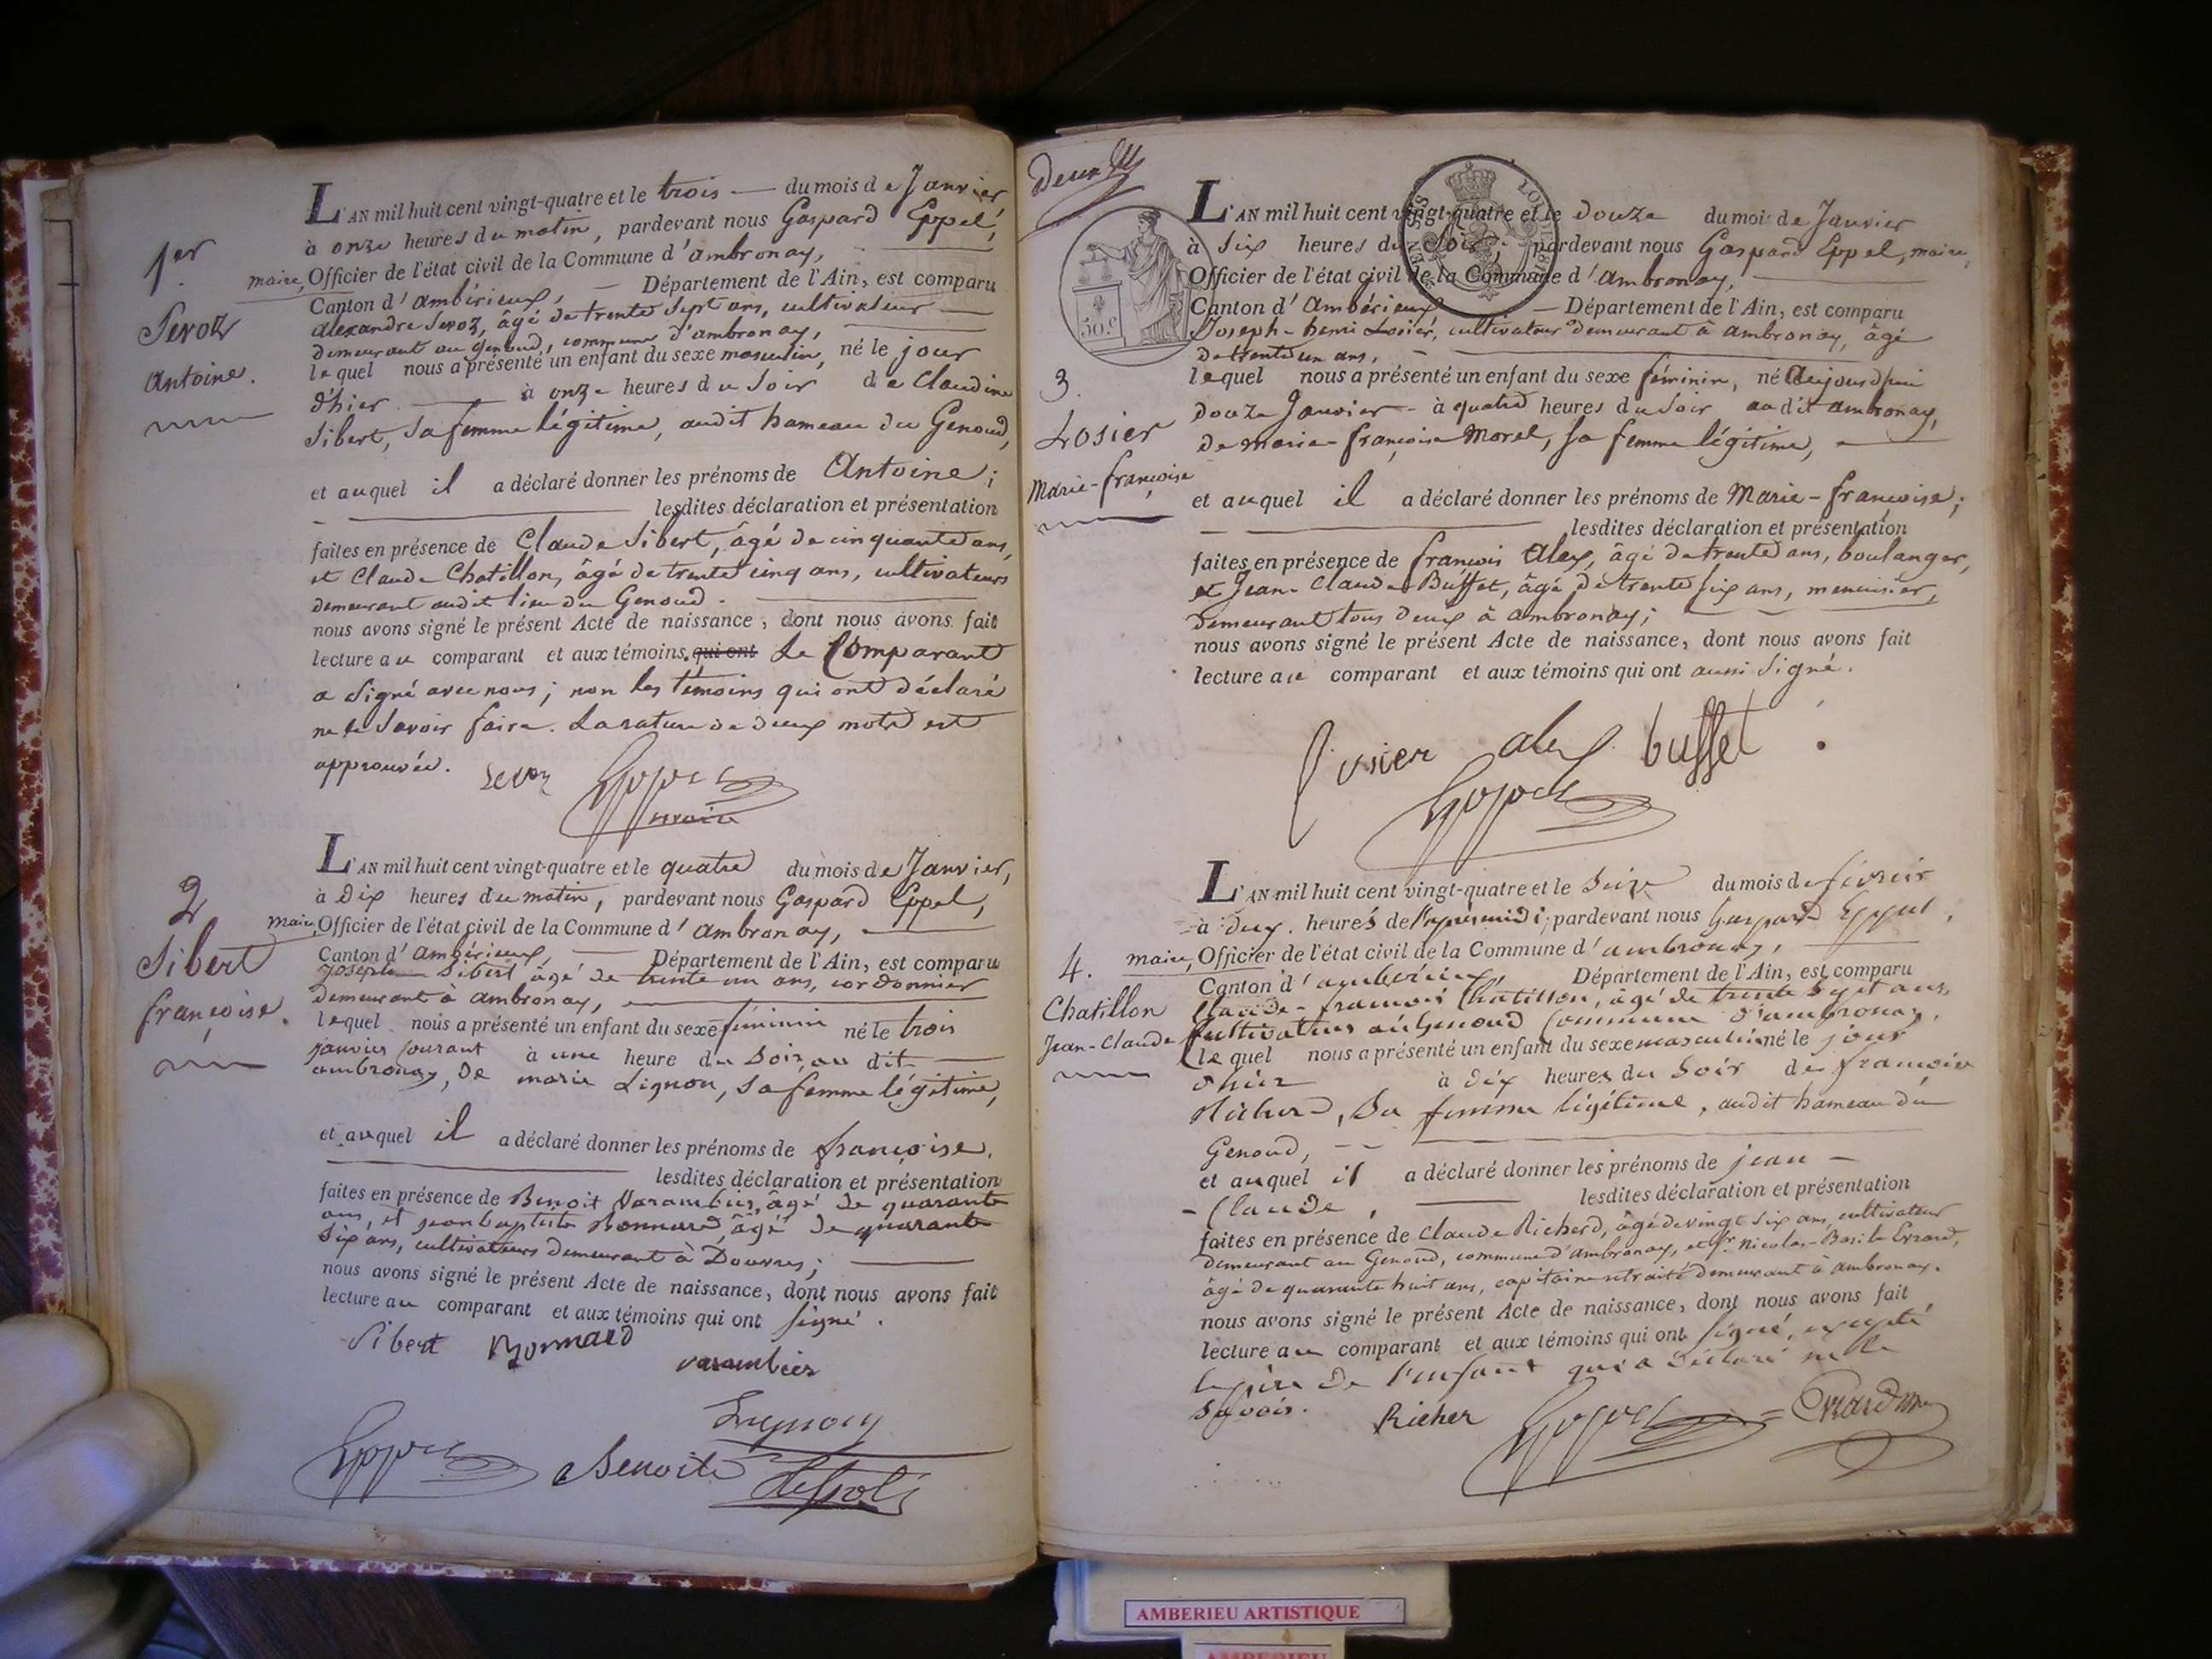 1er
Seroz
Antoine.
L'AN mil huit cent vingt-quatre et le trois — du mois de Janvier
à onze heures du matin, pardevant nous Gaspard Eppel,
maire, Officier de l'état civil de la Commune d'ambronay,
Canton d'ambérieux, — Département de l'Ain, est comparu
alexandre Seroz, âgé de trente sept ans, cultivateur —
demeurant au Genoud, commune d'ambronay,
lequel nous a présenté un enfant du sexe masculin, né le jour
d'hier — à onze heures du soir de Claudine
Sibert, sa femme légitime, audit hameau du Genoud,
et auquel il a déclaré donner les prénoms de Antoine;
lesdites déclaration et présentation
faites en présence de Claude Sibert, âgé de cinquante ans,
et Claude Chatillon, âgé de trente cinq ans, cultivateurs
demeurant audit lieu du Genoud.
nous avons signé le présent Acte de naissance, dont nous avons fait
lecture au comparant et aux témoins. qui ont Le Comparant
a signé avec nous; non les témoins qui ont déclaré
ne le savoir faire. La rature de deux mots est
approuvée. Seroz Eppel
maire
2
Sibert
françoise.
L'AN mil huit cent vingt-quatre et le quatre du mois de Janvier,
à dix heures du matin, pardevant nous Gaspard Eppel,
maire, Officier de l'état civil de la Commune d'ambronay,
Canton d'ambérieux, — Département de l'Ain, est comparu
Joseph Sibert âgé de trente un ans, cordonnier
demeurant à ambronay,
lequel nous a présenté un enfant du sexe féminin né le trois
janvier courant à une heure du soir, au dit
ambronay, de marie Lignon, sa femme légitime,
et auquel il a déclaré donner les prénoms de françoise.
lesdites déclaration et présentation
faites en présence de Benoit Varambier, âgé de quarante
ans, et jean baptiste Bonnard, âgé de quarante
six ans, cultivateurs demeurant à Douvres;
nous avons signé le présent Acte de naissance, dont nous avons fait
lecture au comparant et aux témoins qui ont signé.
Sibert Bonnard
varambier
Eppel Benoite
deux
50.c
3.
Losier
Marie-françoise
L'AN mil huit cent vingt-quatre et le douze du mois de Janvier
à six heures du soir, pardevant nous Gaspard Eppel, maire,
Officier de l'état civil de la Commune d'ambronay,
Canton d'Ambérieux — Département de l'Ain, est comparu
Joseph-henri Losier, cultivateur demeurant à ambronay, âgé
de trente un ans,
lequel nous a présenté un enfant du sexe féminin, né Aujourd'hui
douze Janvier - à quatre heures du soir audit ambronay,
de marie-françoise Morel, sa femme légitime,
et auquel il a déclaré donner les prénoms de Marie-françoise;
lesdites déclaration et présentation
faites en présence de françois Alex, âgé de trente ans, boulanger,
et Jean-Claude Buffet, âgé de trente six ans, menuisier,
demeurant tous deux à ambronay;
nous avons signé le présent Acte de naissance, dont nous avons fait
lecture au comparant et aux témoins qui ont aussi signé.
Losier alex buffet
Eppel
4.
Chatillon
Jean-Claude
L'AN mil huit cent vingt-quatre et le seize du mois de février
à deux heures de l'après midi, pardevant nous Gaspard Eppel,
maire, Officier de l'état civil de la Commune d'ambronay,
Canton d'ambérieux, Département de l'Ain, est comparu
Claude-françois Chatillon, âgé de trente sept ans,
cultivateur au Genoud Commune d'ambronay,
lequel nous a présenté un enfant du sexe masculin né le jour
d'hier à dix heures du soir de françoise
Richerd, sa femme légitime, audit hameau du
Genoud,
et auquel il a déclaré donner les prénoms de jean -
- Claude, lesdites déclaration et présentation
faites en présence de Claude Richerd, âgé de vingt six ans, cultivateur
demeurant au Genoud, commune d'ambronay, et Sr. Nicolas-Basile Erard,
âgé de quarante huit ans, capitaine retraité demeurant à ambronay.
nous avons signé le présent Acte de naissance, dont nous avons fait
lecture au comparant et aux témoins qui ont signé, excepté
le père de l'enfant qui a déclaré ne le
savoir. Richer Eppel
AMBERIEU ARTISTIQUE
AMBERIEU